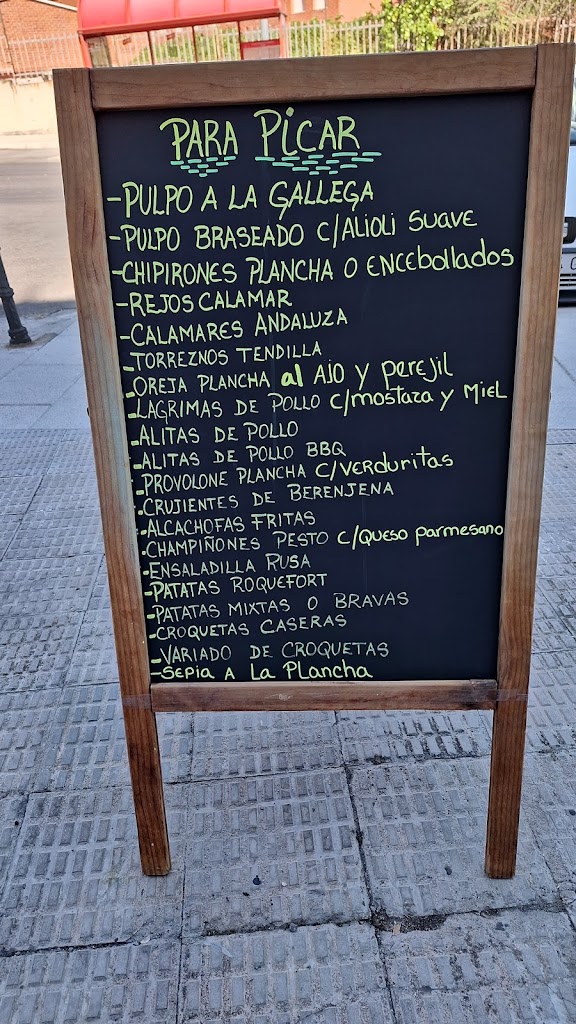 PARA PiCAR
-PULPO A LA GALLEGA
-PULPO BRASEADO C/Alioli Suave
-CHIPIRONES PLANCHA O ENCEbollados
-REJOS CALAMAR
-CALAMARES ANDALUZA
-TORREZNOS TENDILLA
-OREJA PLANCHA al AJO y perejil
-LAGRIMAS DE POLLO C/mostaza y MIEL
-ALITAS DE POLLO
-ALITAS DE POLLO BBQ
-PROVOLONE PLANCHA C/VERduritas
-CRUJIENTES DE BERENJENA
-ALCACHOFAS FRITAS
-CHAMPIÑONES PESTO C/Queso parmesano
-ENSALADILLA RUSA
-PATATAS ROQUEFORT
-PATATAS MIXTAS O BRAVAS
-CROQUETAS CASERAS
-VARIADO DE CROQUETAS
-Sepia A La Plancha